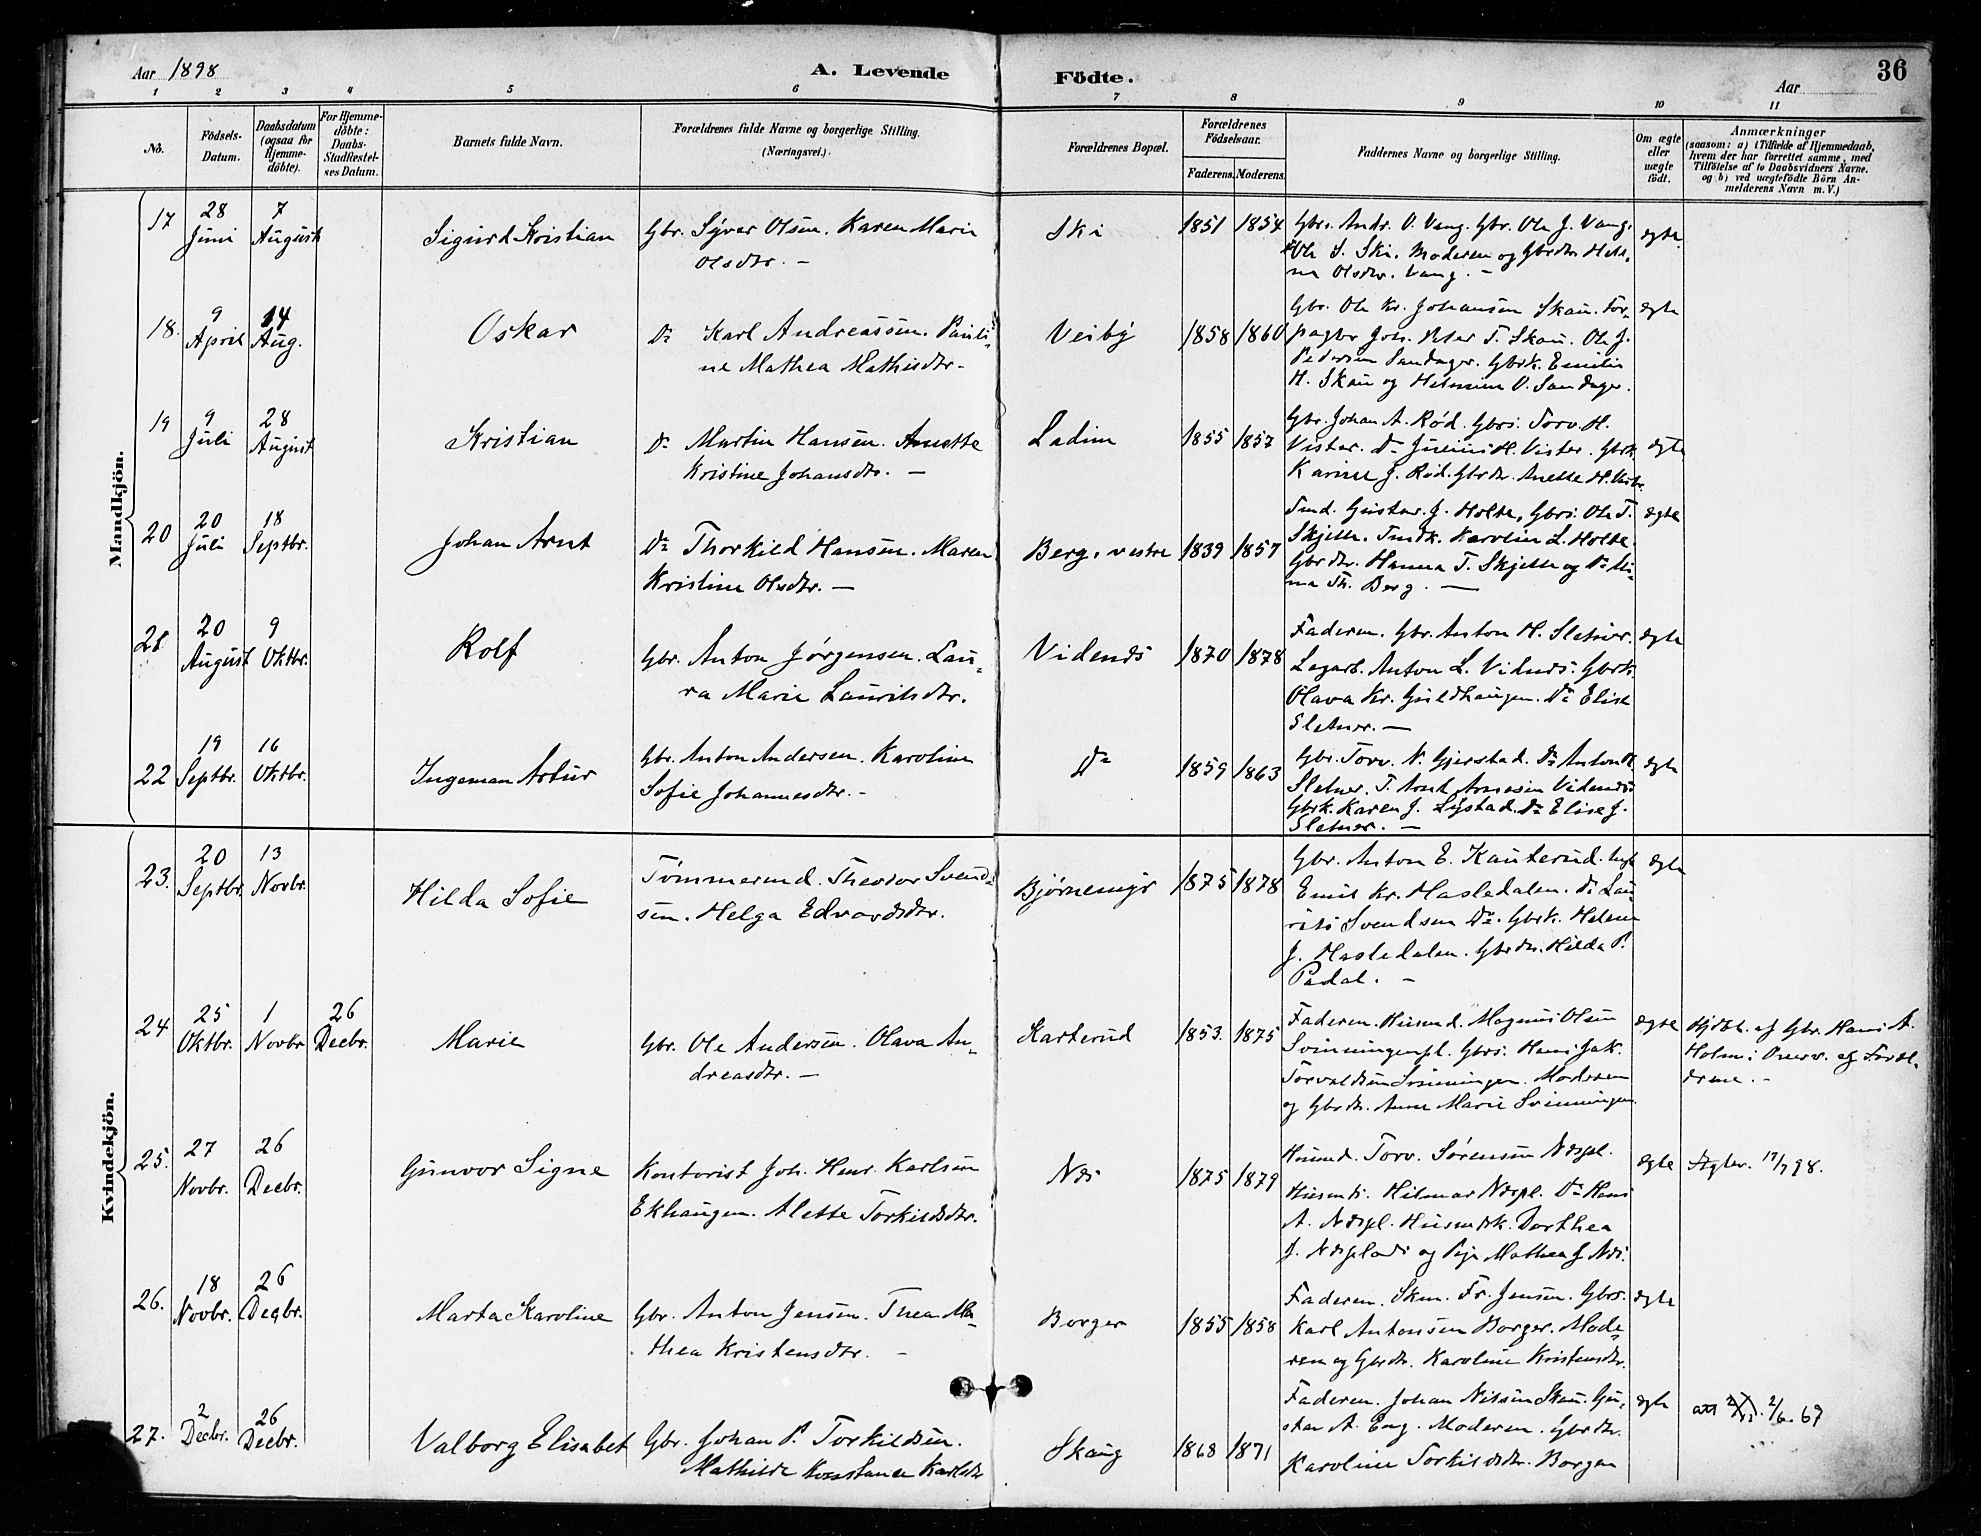 Aar 1898
A. Levende Födte.
Aar
36
1 2 3 4 5 6 7 8 9 10 11
No.
Födsels-Datum.
Daabsdatum (ogsaa for Hjemme-döbte).
For Hjemme-döbte: Daabs-Stadfæstel-ses Datum.
Barnets fulde Navn.
Forældrenes fulde Navne og borgerlige Stilling.
(Næringsvei.)
Forældrenes Bopæl.
Forældrenes Födselsaar.
Faderens. Moderens.
Faddernes Navne og borgerlige Stilling.
Om ægte eller uægte födt.
Anmærkninger
(saasom: a) i Tilfælde af Hjemmedaab,
hvem der har forrettet samme, med
Tilföielse af to Daabsvidners Navne,
og b) ved uægtefödte Börn An-
melderens Navn m. V.)
Mandkjön.
17 28 Juni 7 August Sigurd Kristian Gbr. Syver Olsen. Karen Marie
Olsdtr. —
Ski 1851 1854 Gbr. Andr. O. Vang. Gbr. Ole J. Vang.
Ole S. Ski. Moderen og Gbrdtr. Hel-
na Olsdtr. Vang. — ægte
18. 9 April 14 Aug. Oskar Do Karl Andreassen. Pauli-
ne Mathea Mathisdtr.
Veiby 1858 1860 Gbr. Ole Kr. Johansen Skau. For-
pagter Joh. Peter T. Skau. Ole J.
Pedersen Sandager. Gbrk. Emilie
H. Skau og Helmine O. Sandager. ægte
19 9 Juli 28 August Kristian Do Martin Hansen. Anette
Kristine Johansdtr. —
Ladim 1855 1857 Gbr. Johan A. Rød. Gbrs. Torv. H.
Vister. Do Julius H. Vister. Gbrk.
Karine J. Rød. Gbrdtr. Anette H. Vister. ægte
20 20 Juli 18 Septbr. Johan Arnt Do Thorkild Hansen. Maren
Kristine Olsdtr. —
Berg, vestre 1839 1857 Smd. Gustav J. Holte, Gbrs. Ole T.
Skjelle. Smdk. Karoline L. Holte.
Gbrdtr. Hanna T. Skjelle og Do Mi-
na Th. Berg. — ægte
21 20 August 9 Oktbr. Rolf Gbr. Anton Jørgensen. Lau-
ra Marie Lauritsdtr.
Videnes 1870 1878 Faderen. Gbr. Anton H. Sletner.
Legarb. Anton L. Vidnes. Gbrk.
Olava Kr. Guldhaugen. Do Elise
Sletner. — ægte
22 19 Septbr. 16 Oktbr. Ingeman Artur Gbr. Anton Andersen. Karoline
Sofie Johannesdtr. —
Do 1859 1863 Gbr. Torv. N. Gjerstad. Do Anton H.
Sletner. T. Arnt Arnesen Videnes.
Gbrk. Karen J. Lystad. Do Elise J.
Sletner. — ægte
Kvindekjön.
23. 20 Septbr. 13 Novbr. Hilda Sofie Tømmermd. Theodor Svend-
sen. Helga Edvardsdtr.
Bjørnemyr 1875 1878 Gbr. Anton E. Kauterud. Ungk.
Emil Kr. Hasledalen. Do Lau-
rits Svendsen Do. Gbrk. Helene
J. Hasledalen. Gbrdtr. Hilda P.
Padal. — ægte
24 25 Oktbr. 1 Novbr. 26 Decbr. Marie Gbr. Ole Andersen. Olava An-
dreasdtr. —
Karterud 1853. 1875 Faderen. Husmd. Magnus Olsen
Svinningenpl. Gbrs. Hans Jak.
Torvaldsen Svinningen. Moderen
og Gbrdtr. Anne Marie Svinningen. ægte
Hjdbt. af Gbr. Hans A.
Holm i Overv. af Foræl-
drene. —
25. 27 Novbr. 26 Decbr. Gunvor Signe Kontorist Joh. Henr. Karlsen
Ekhaugen. Alette Torkildsdtr.
Næs 1875 1879 Husmd. Torv. Sørensen Næspl.
Husmk. Hilmar Næspl. Do Hans
A. Næspl. Husmdk. Dorthea
J. Næsplads og Pige Mathea J. Næs. ægte
17/7 98.
26. 18 Novbr. 26 Decbr. Marta Karoline Gbr. Anton Jensen. Thea Ma-
thea Kristensdtr. —
Borger 1855 1858 Faderen. Skm. Fr. Jensen. Gbrs.
Karl Antonsen Borger. Mode-
ren og Gbrdtr. Karoline Kristensdtr. ægte
27. 2 Decbr. 26 Decbr. Valborg Elisabet Gbr. Johan P. Torkildsen.
Mathilde Konstance Karlsdtr
Skaug 1868 1871 Faderen. Johan Nilsen Skau. Gu-
stav A. Eng. Moderen. Gbrdtr.
Karoline Torkildsdtr. Borgen ægte
att 2/6.67